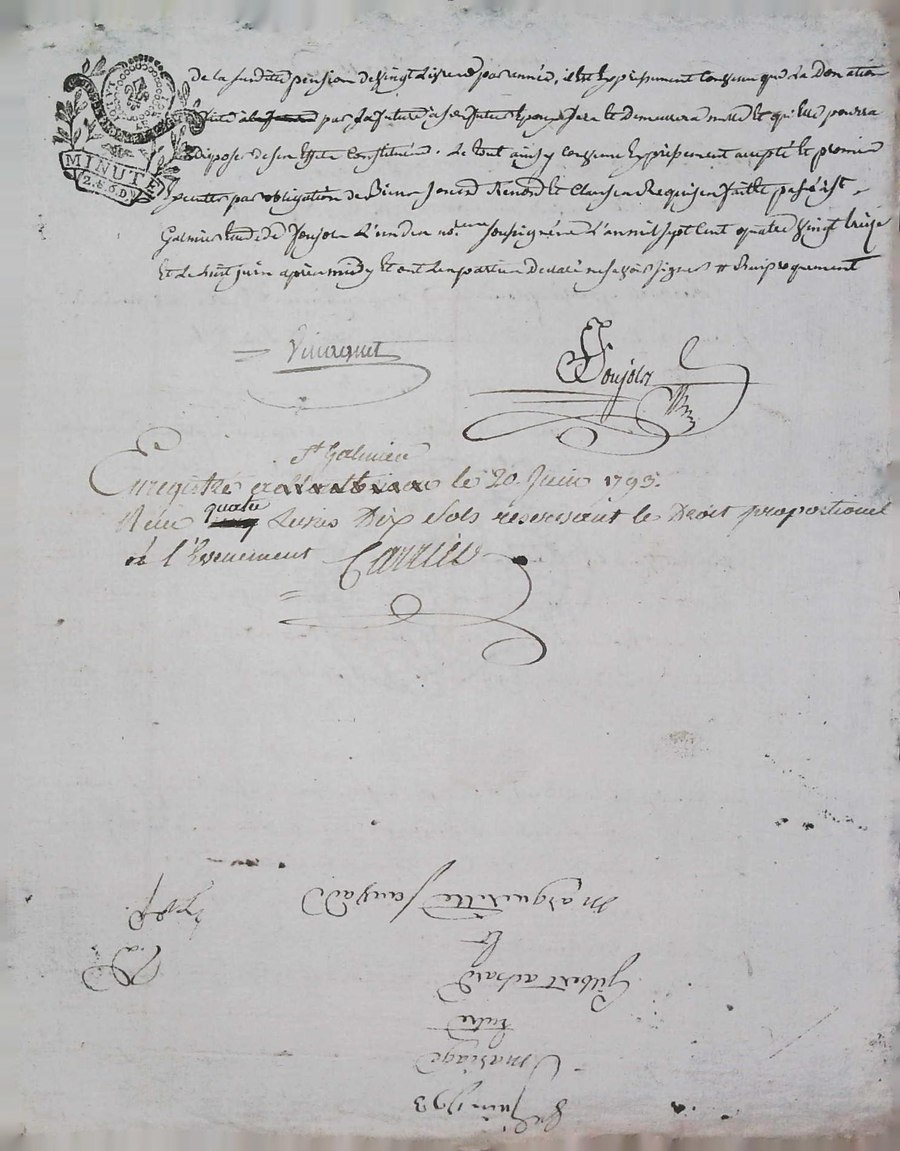 MINUTE
2. S. 6. D.
de la susditte pension de vingt livres par année, il est expressement convenu que la donation
par la future à son futur Epoux sera et demeurera nulle et qu'elle pourra
disposer de ses effets constitués. Le tout ainsy convenu expressement accepté et promis
par obligation de Biens soumis Renond et Clauses Requises fait et passé à st
Galmier Etude de Joujole l'un des nores soussignés l'an mil sept cent quatre vingt treize
et le huit juin apres midy et ont les parties declaré ne savoir signer # Reciproquement
Joujole
St Galmier
Enregistré a le 20 Juin 1793.
Reçu quatre Livres Dix sols reservant le Droit proportionel
à l'Evenement Carrier
8e juin 1793
mariage
entre
Gilbert achard
et
margueritte